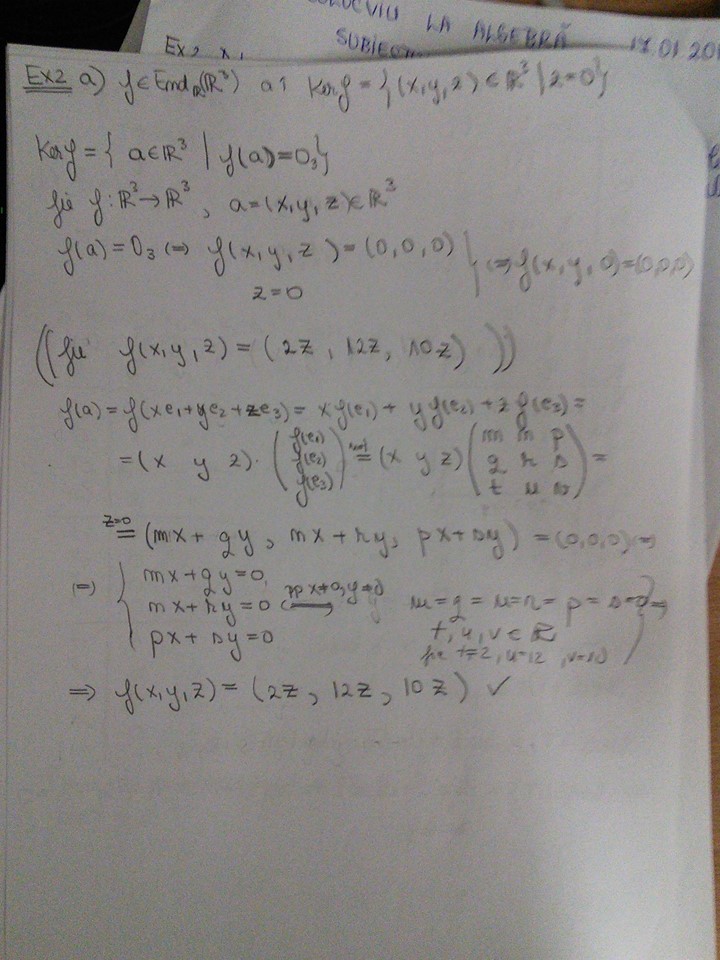 COLOCVIU LA ALGEBRĂ 17.01.201
Ex2
Ex2 a) f∈End_ℝ(ℝ³) aî Ker f = {(x,y,z) ∈ ℝ³ | z=0}
Ker f = { a∈ℝ³ | f(a)=0₃}
fie f:ℝ³→ℝ³, a=(x,y,z)∈ℝ³
f(a)=0₃ (⇒ f(x,y,z)=(0,0,0) } (⇒ f(x,y,0)=(0,0,0)
z=0
((fie f(x,y,z) = (2z, 12z, 10z) ))
f(a)=f(xe₁+ye₂+ze₃)= xf(e₁)+ yf(e₂)+zf(e₃)=
=(x y z)·(f(e₁) f(e₂) f(e₃)) = (x y z) (m n p q r s t u v) =
z=0 = (mx+qy, nx+ry, px+sy) = (0,0,0) ⇒
(=) { mx+qy=0
nx+ry=0
px+sy=0
t,u,v∈ℝ
fie t=2, u=12, v=10
⇒ f(x,y,z) = (2z, 12z, 10z) ✓